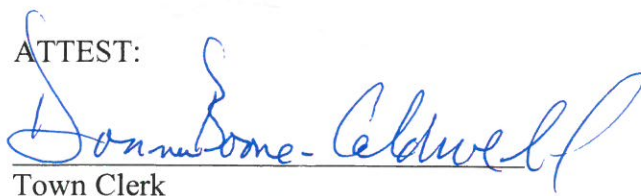 ATTEST:
Donna Boone-Caldwell
Town Clerk